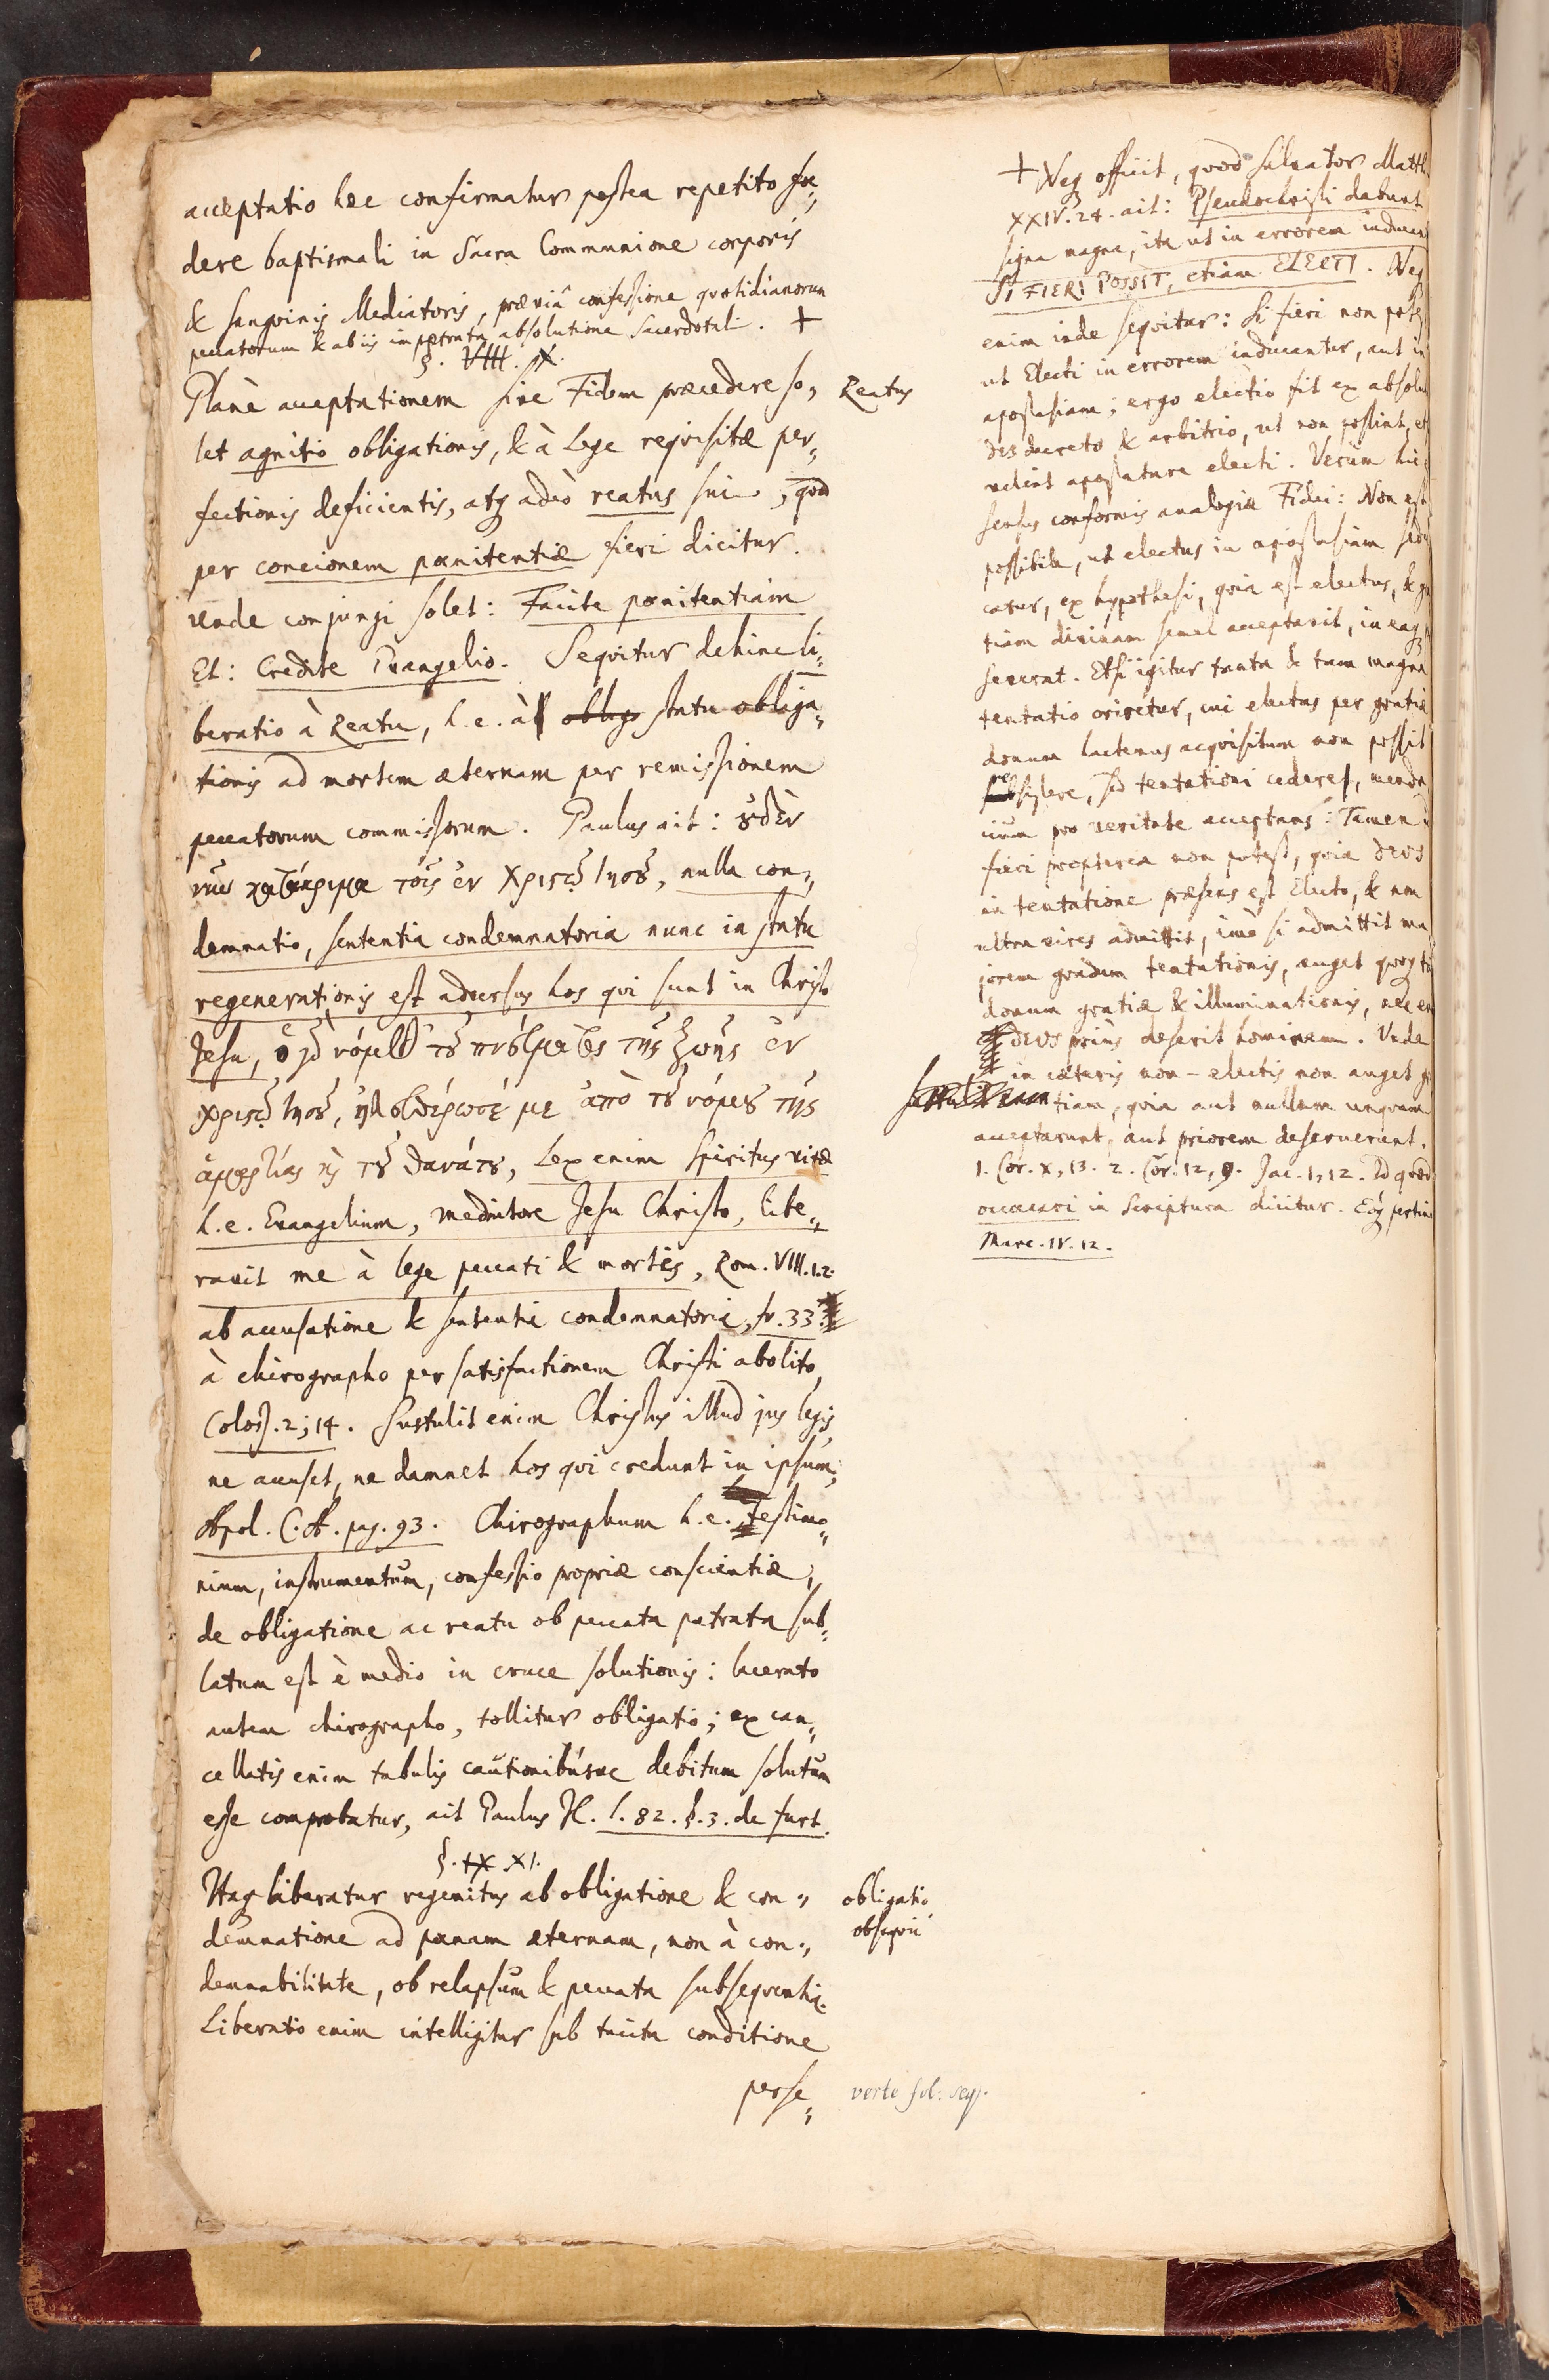 acceptatio hæc confirmatur postea repetito fœ„
dere baptismali in Sacra Communione corporis
& sanguinis Mediatoris, præviâ confessione quotidianorum
peccatorum & ab iis impetrata absolutione sacerdotali. +
§. VIII. IX.
Planè acceptationem sive Fidem præcedere so„
let agnitio obligationis, & à Lege requisitæ per„
fectionis deficientis, atq adeò reatus sui, quod
per concionem pœnitentiæ fieri dicitur.
unde conjungi solet: Facite pœnitentiam
Et: Credite Evangelio. Sequitur dehinc li„
beratio à Reatu, h.e. à obligo statu obliga„
tionis ad mortem æternam per remissionem
peccatorum commissorum. Paulus ait: ȣδὲν
νῦν κατάκριμα τοῖς ἐν Χριςῷ Ἰησοῦ, nulla con„
demnatio, sententia condemnatoria nunc in statu
regenerationis est adversus hos qui sunt in Christo
Jesu, ὁ γὸ νόμος τȣ͂ πνεύματος τῆς ζωῆς ἐν
χριςῷ Ἰησȣ͂, ἠλευθέρωσέ με ἀπὸ τȣ͂ νόμȣ τῆς
ἁμαρτίας ϗ̀ τȣ͂ θανάτȣ, Lex enim Spiritus vitæ
h.e. Evangelium, mediatore Jesu Christo, libe„
ravit me à lege peccati & mortis, Rom. VIII.1.2.
ab accusatione & sententia condemnatoria, ꝟ. 33.
à chirographo per satisfactionem Christi abolito,
Coloss. 2; 14. Sustulit enim Christus illud jus legis,
ne accuset, ne damnet hos qui credunt in ipsum,
Apol. C. A. pag. 93. Chirographum h.e. testimo„
nium, instrumentum, confessio propriæ conscientiæ,
de obligatione ac reatu ob peccata patrata sub„
latum est è medio in cruce solutionis: lacerato
autem chirographo, tollitur obligatio; ex can„
cellatis enim tabulis cautionibúsve debitum solutum
esse comprobatur, ait Paulus JC. l. 82. §. 3. de furt.
§. IX XI.
Itaq liberatur regenitus ab obligatione & con„
demnatione ad pœnam æternam, non à con„
demnabilitate, ob relapsum & peccata subsequentia.
Liberatio enim intelligitur sub tacita conditione
perse„
Reatus
obligatio
obsequii
verte fol: seq.
+ Neq officit, quod Salvator Matth
XXIV. 24. ait: Pseudochristi dabunt
signa magna, ita ut in errorem inducan
SI FIERI POSSIT, etiam ELECTI. Neq
enim inde sequitur: Si fieri non potes
ut Electi in errorem inducantur, aut in
apostasiam; ergo electio fit ex absolu
dei decreto & arbitrio, ut non possint, et
velint apostatare electi. Verùm hic
sensus conformis analogiæ Fidei: Non est
possibile, ut electus in apostasiam sedu
catur, ex hypothesi, quia est electus, & gra
tiam divinam semel acceptavit, in eaq
severat. Etsi igitur tanta & tam magna
tentatio oriretur, cui electus per gratiæ
donum hactenus acquisitum non possit
resistere, sed tentationi cederet, menda
cium pro veritate acceptans: Tamen
fieri propterea non potest, quia DEUS
in tentatione præsens est Electo, & non
ultra vires admittit, imò si admittit ma
jorem gradum tentationis, auget quoq
donum gratiæ & illuminationis, nec en
DEUS prius deserit hominem. Unde
in cæteris non-electis non auget gr
tiam, quia aut nullam unquam
acceptarunt, aut priorem deseruerunt.
1. Cor. X, 13. 2. Cor. 12, 9. Jac. 1, 12. Id quod
occæcari in Scriptura dicitur. Eóq pertin
Marc. IV. 12.